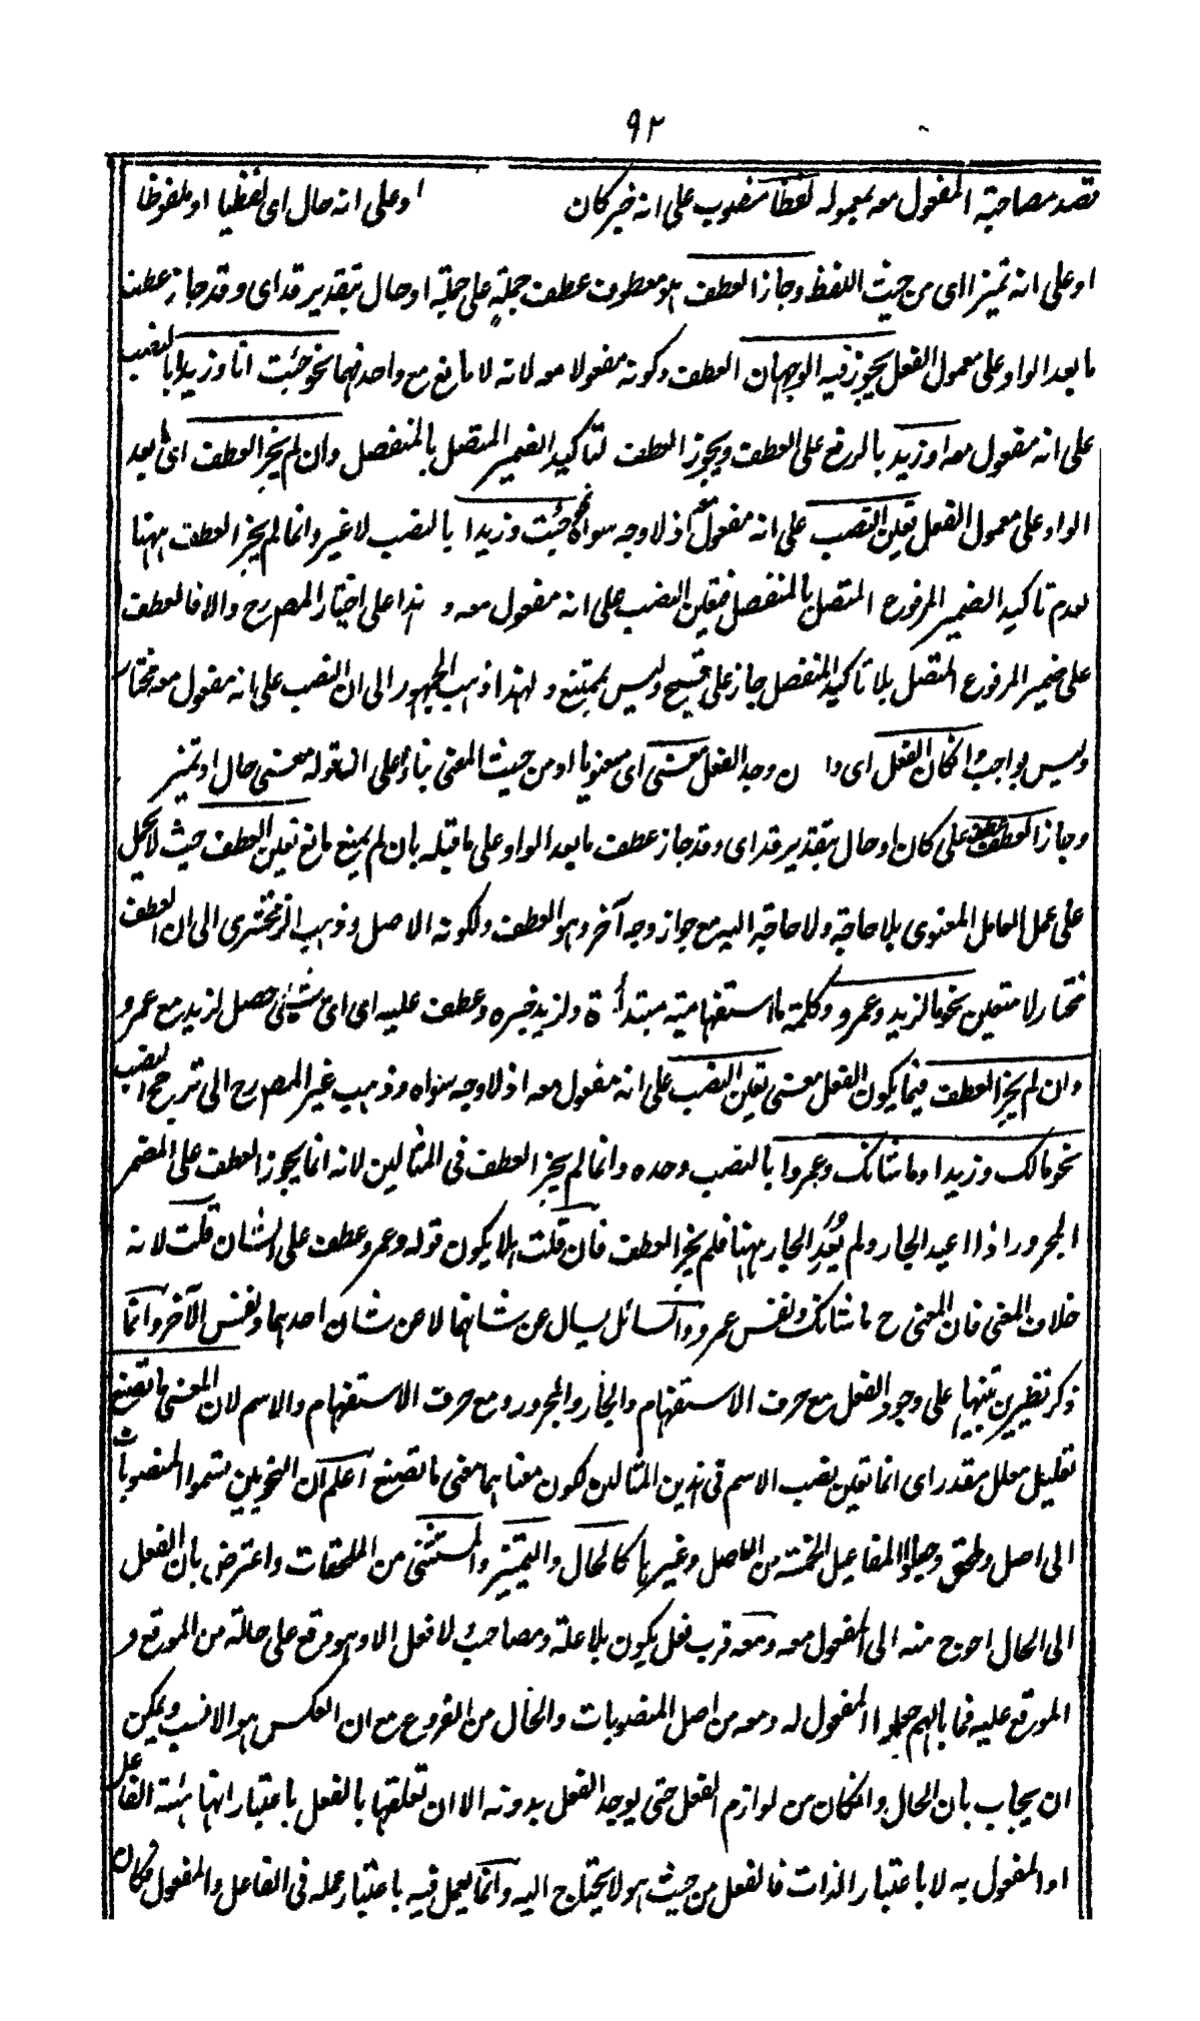 ٩٢
قصد مصاحبة المفعول معه بمعموله لفظا منصوب على انه خبر كان او على انه حال اى لفظيا او ملفوظا
او على انه تميز اى من حيث اللفظ وجاز العطف هو معطوف عطف جملة على جملة او حال بتقدير قد اى وقد جاز عطف
ما بعد الواو على معمول الفعل يجوز فيه الوجهان العطف وكونه مفعولا معه لانه لا مانع مع واحد منهما نحو جئت انا وزيدا بالنصب
على انه مفعول معه او زيد بالرفع على العطف ويجوز العطف لتأكيد الضمير المتصل بالمنفصل وان لم يجز العطف اى بعد
الواو على معمول الفعل تعين النصب على انه مفعول معه اذ لا وجه سواه نحو جئت وزيدا بالنصب لا غير وانما لم يجز العطف ههنا
لعدم تاكيد الضمير المرفوع المتصل بالمنفصل فتعين النصب على انه مفعول معه و هذا على اختيار المص رح والا فالعطف
على ضمير المرفوع المتصل بلا تاكيد المنفصل جاز على قبيح وليس بممتنع ولهذا ذهب الجمهور الى ان النصب على انه مفعول معه مختار
وليس بواجب وان كان الفعل اى وا ن وجد الفعل معنى اى معنويا او من حيث المعنى بناء على ان قوله معنى حال او تميز
وجاز العطف عطف على كان او حال بتقدير قد اى وقد جاز عطف ما بعد الواو على ما قبله بان لم يمنع مانع تعين العطف حيث لا يحمل
على عمل العامل المعنوى بلا حاجة ولا حاجة اليه مع جواز وجه آخر وهو العطف ولكونه الاصل وذهب الزمخشرى الى ان العطف
مختار لا متعين نحو ما لزيد وعمرو وكلمة ما استفهامية مبتدأ ة ولزيد خبره وعطف عليه اى اى شيئ حصل لزيد مع عمرو
وان لم يجز العطف فيما يكون الفعل معنى تعين النصب على انه مفعول معه اذ لا وجه سواه وذهب غير المص رح الى ترجيح النصب
نحو مالك وزيدا وما شانك وعمروا بالنصب وحده وانما لم يجز العطف فى المثالين لانه انما يجوز العطف على المضمر
المجرور اذا اعيد الجار ولم يُعَدِ الجار ههنا فلم يجز العطف فان قلت هلا يكون قوله وعمرو عطف على الشان قلت لانه
خلاف المعنى فان المعنى ح ما شانك ونفس عمرو والسائل يسال عن شانهما لا عن شان احدهما ونفس الآخر وانما
ذكر نظيرين تنبيها على وجود الفعل مع حرف الاستفهام والجار والمجرور ومع حرف الاستفهام والاسم لان المعنى ما تصنع
تعليل معلل مقدر اى انما تعين نصب الاسم فى هذين المثالين لكون معناهما معنى ما تصنع اعلم ان النحويين قسموا المنصوبات
الى اصل وملحق وجعلوا المفاعيل الخمسة من الاصل وغيرها كالحال والتميز والمستثنى من الملحقات واعترض بان الفعل
الى الحال احوج منه الى المفعول معه ومعه فرب فعل يكون بلا علة ومصاحب ولا فعل الا وهو موقع على حالة من الموقع و
الموقع عليه فما بالهم جعلوا المفعول له ومعه من اصل المنصوبات والحال من الفروع مع ان العكس هو الانسب ويمكن
ان يجاب بان الحال والمكان من لوازم الفعل حتى يوجد الفعل بدونه الا ان تعلقها بالفعل باعتبار انها هيئة الفاعل
او المفعول به لا باعتبار الذات فالفعل من حيث هو لا يحتاج اليه وانما يعمل فيه باعتبار عمله فى الفاعل والمفعول فكان